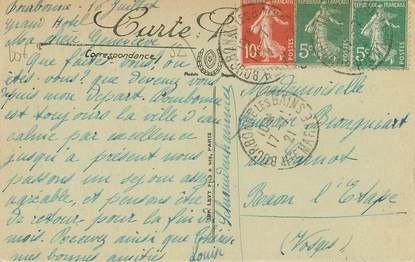 Bourbonne 16 Juillet
Grand Hotel
Carte
Ma chère Geneviève
Correspondance
Que faites vous? où
êtes-vous? que devenez vous
depuis mon départ. Bourbonne
est toujours la ville d'eau
calme par excellence
jusqu'à présent nous
passons un séjour assez
agréable, et pensons être
de retour pour la fin du
mois. Recevez ainsi que
mes bonnes amitiés
Louise
PARIS
10c POSTES
5c POSTES
5c POSTES
BOURBONNE-LES-BAINS
17-7
21
Hte MARNE
Mademoiselle
Carnot
Raon l'Etape
(Vosges)